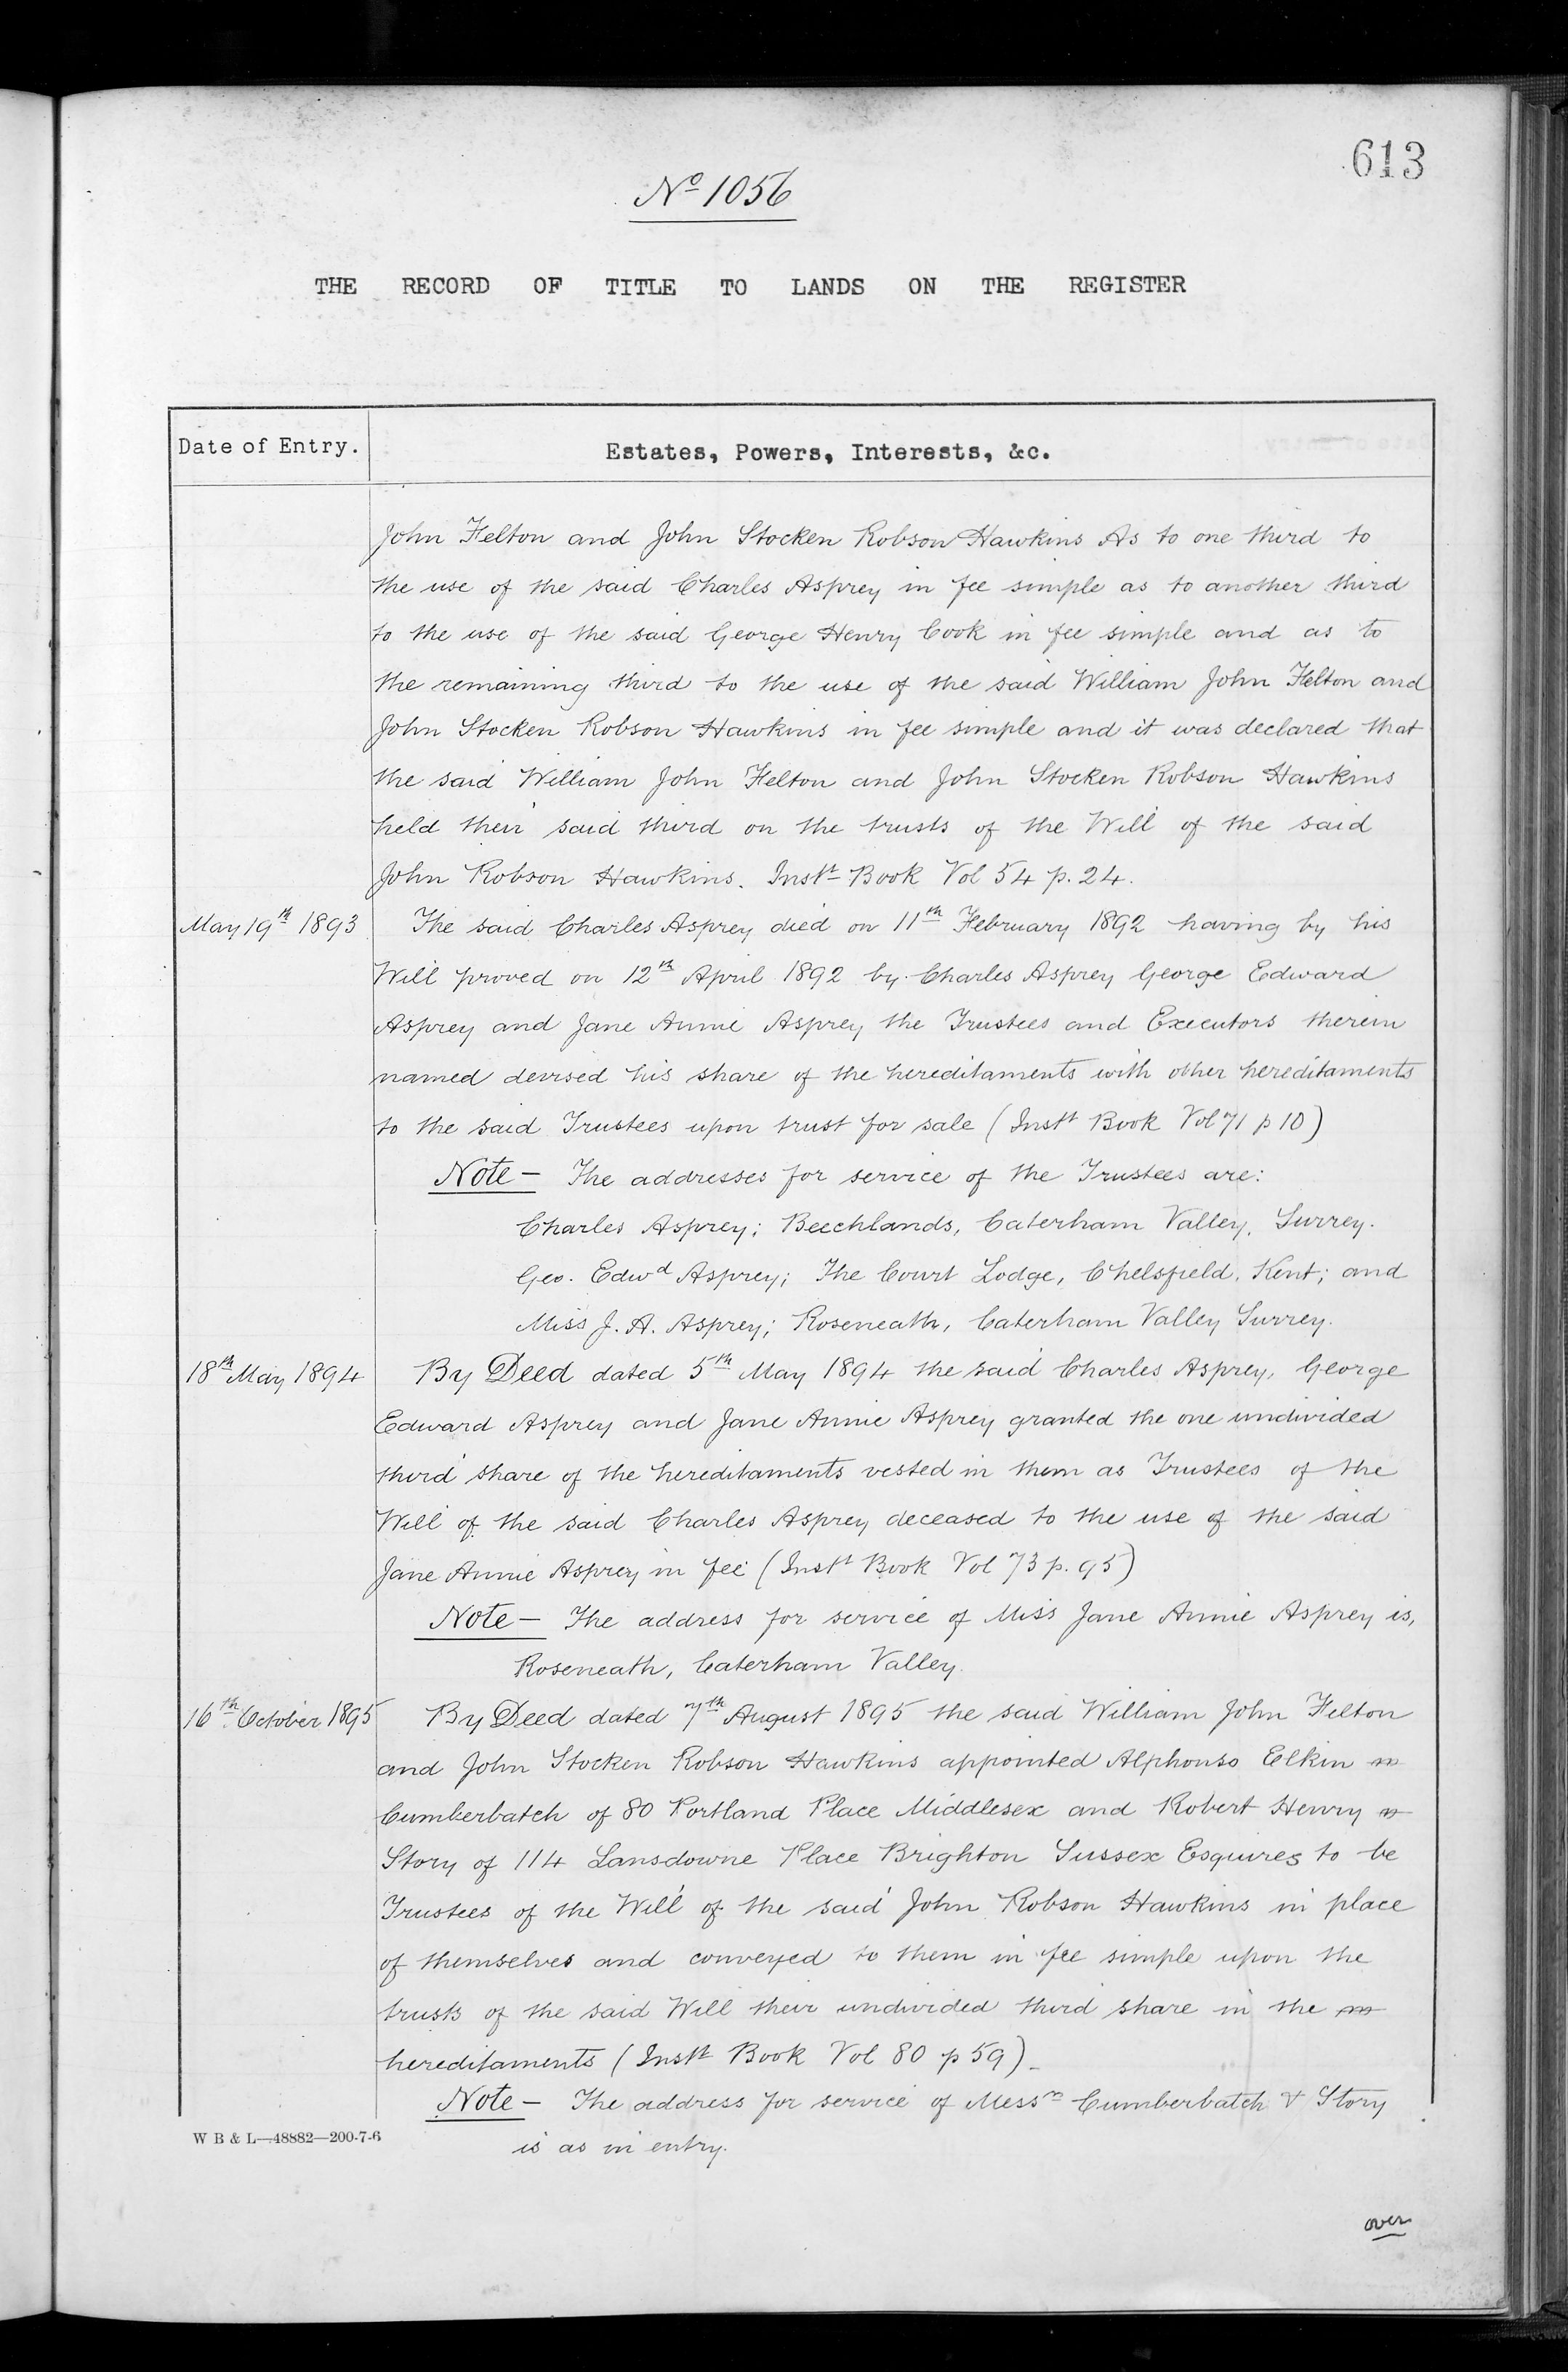 613
No 1056
THE RECORD OF TITLE TO LANDS ON THE REGISTER
Date of Entry.
Estates, Powers, Interests, &c.
John Felton and John Stocken Robson Hawkins As to one third to
the use of the said Charles Asprey in fee simple as to another third
to the use of the said George Henry Cook in fee simple and as to
the remaining third to the use of the said William John Felton and
John Stocken Robson Hawkins in fee simple and it was declared that
the said William John Felton and John Stocken Robson Hawkins
held their said third on the trusts of the Will of the said
John Robson Hawkins. Instt Book Vol 54 p. 24.
May 19th 1893 The said Charles Asprey died on 11th February 1892 having by his
Will proved on 12th April 1892 by Charles Asprey George Edward
Asprey and Jane Annie Asprey the Trustees and Executors therein
named devised his share of the hereditaments with other hereditaments
to the said Trustees upon trust for sale (Instt Book Vol 71 p 10)
Note — The addresses for service of the Trustees are:
Charles Asprey; Beechlands, Caterham Valley, Surrey.
Geo. Edwd Asprey; The Court Lodge, Chelsfield, Kent; and
Miss J. A. Asprey; Roseneath, Caterham Valley Surrey.
18th May 1894 By Deed dated 5th May 1894 the said Charles Asprey, George
Edward Asprey and Jane Annie Asprey granted the one undivided
third share of the hereditaments vested in them as Trustees of the
Will of the said Charles Asprey deceased to the use of the said
Jane Annie Asprey in fee (Instt Book Vol 73 p. 95)
Note — The address for service of Miss Jane Annie Asprey is,
Roseneath, Caterham Valley.
16th October 1895 By Deed dated 7th August 1895 the said William John Felton
and John Stocken Robson Hawkins appointed Alphonso Elkin
Cumberbatch of 80 Portland Place Middlesex and Robert Henry
Story of 114 Lansdowne Place Brighton Sussex Esquires to be
Trustees of the Will of the said John Robson Hawkins in place
of themselves and conveyed to them in fee simple upon the
trusts of the said Will their undivided third share in the
hereditaments (Instt Book Vol 80 p 59).
Note — The address for service of Messrs Cumberbatch & Story
is as in entry.
W B & L—48882—200-7-6
over